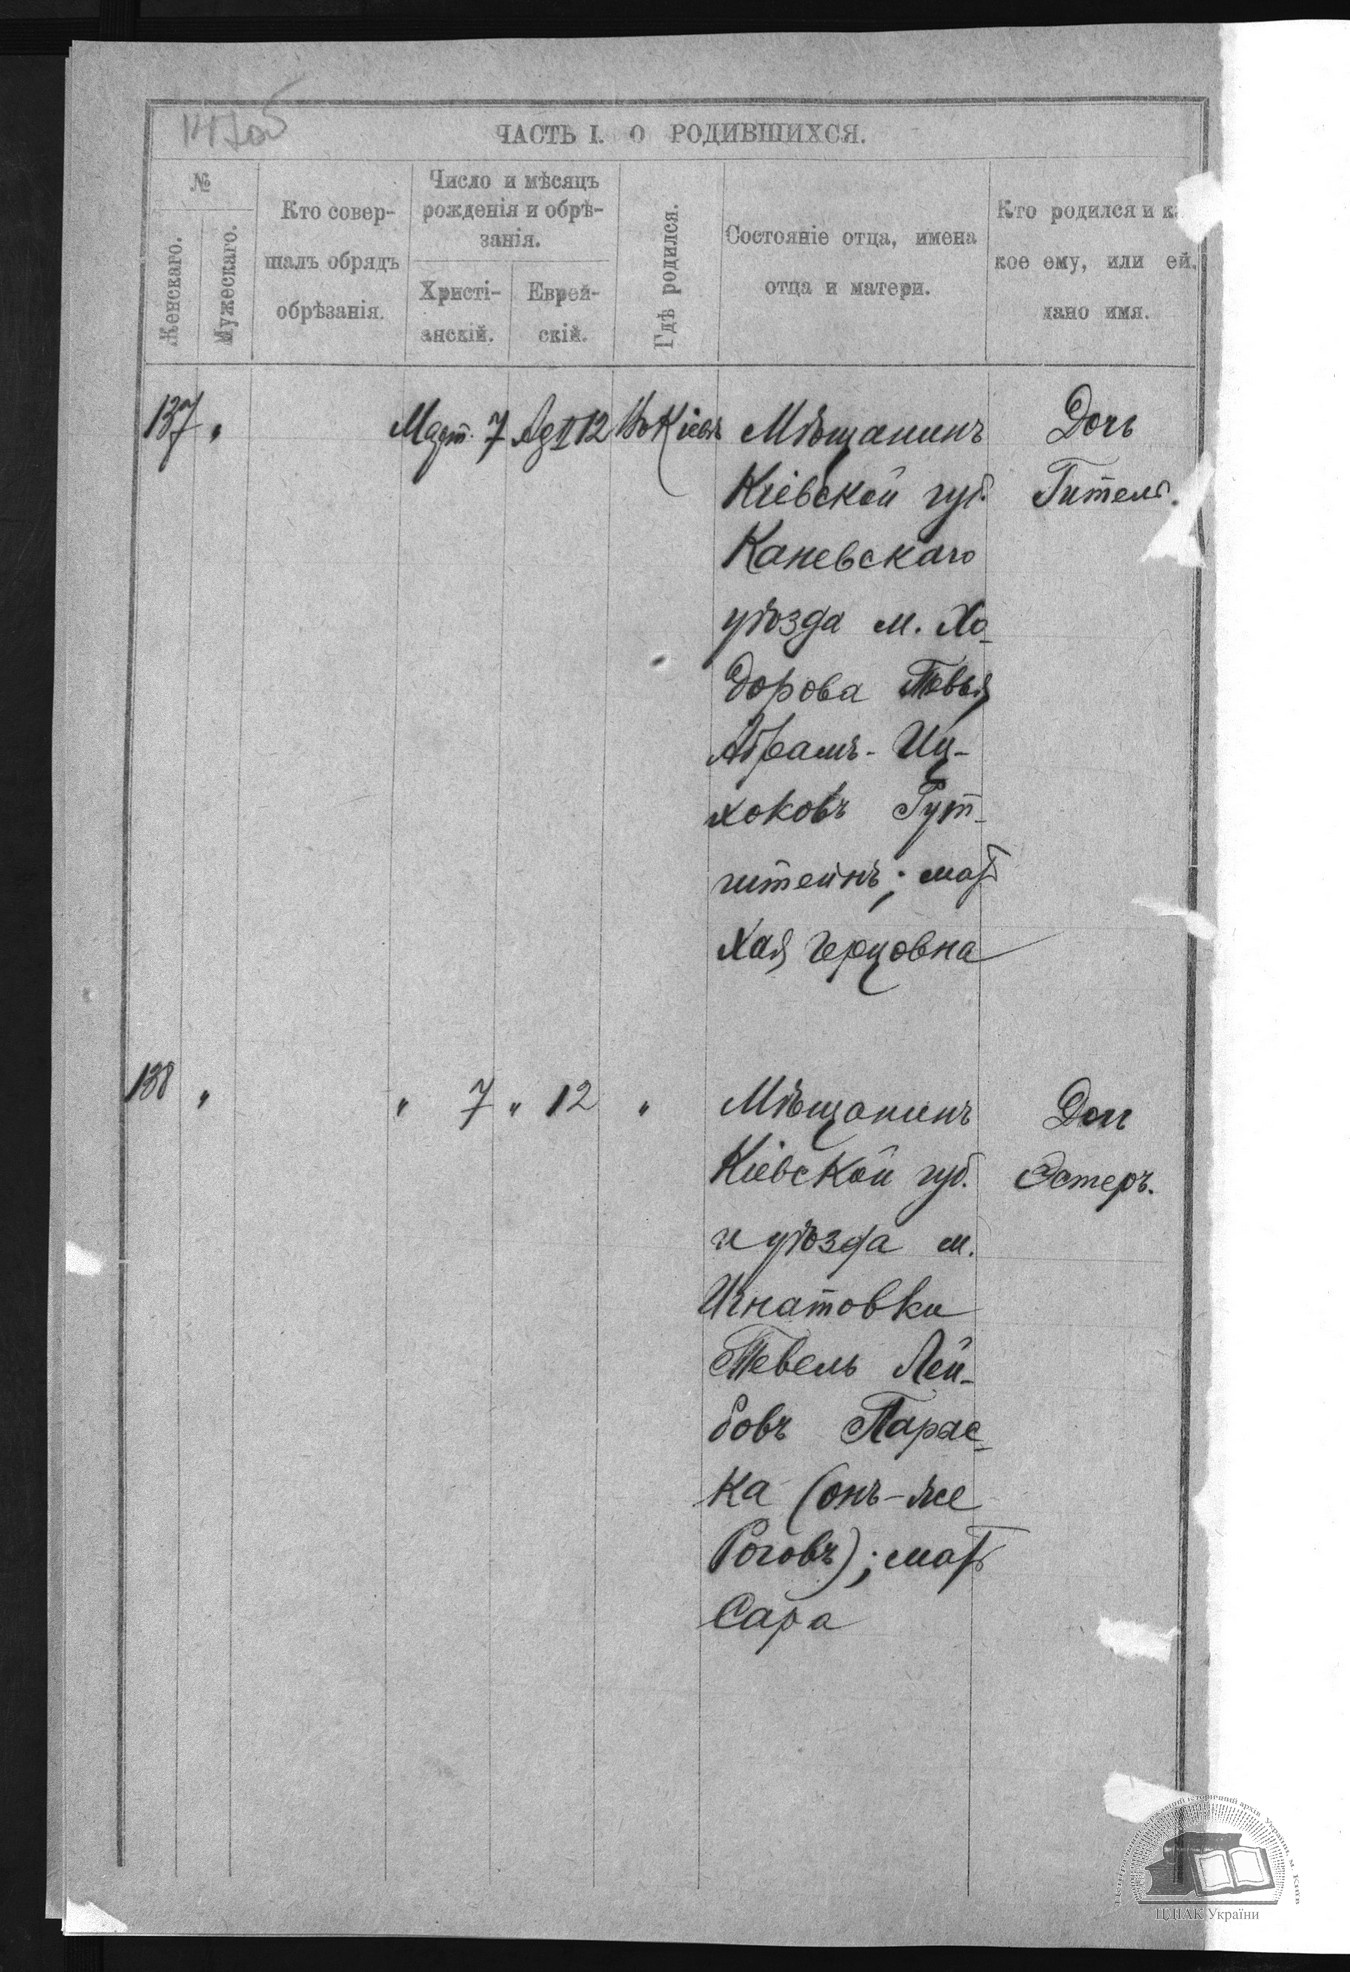 147об
ЧАСТЬ I. О РОДИВШИХСЯ.
№
Женскаго.
Мужескаго.
Кто совер-
шалъ обрядъ
обрѣзанія.
Число и мѣсяцъ
рожденія и обрѣ-
занія.
Христі-
анскій.
Еврей-
скій.
Гдѣ родился.
Состояніе отца, имена
отца и матери.
Кто родился и ка
кое ему, или ей,
дано имя.
137 " Март. 7 Ад II 12 Въ Кіевѣ
Мѣщанинъ
Кіевской губ.
Каневскаго
уѣзда м. Хо-
дорова Тевья
Абрамъ-Иц-
хоковъ Гут-
штейнъ; мать
Хая Герцовна
Дочь
Гитель.
138 " " 7 " 12 "
Мѣщанинъ
Кіевской губ.
и уѣзда м.
Игнатовки
Тевель Лей-
бовъ Парас-
ка (онъ-же
Роговъ); мать
Сара
Дочь
Эстеръ.
ЦДІАК України